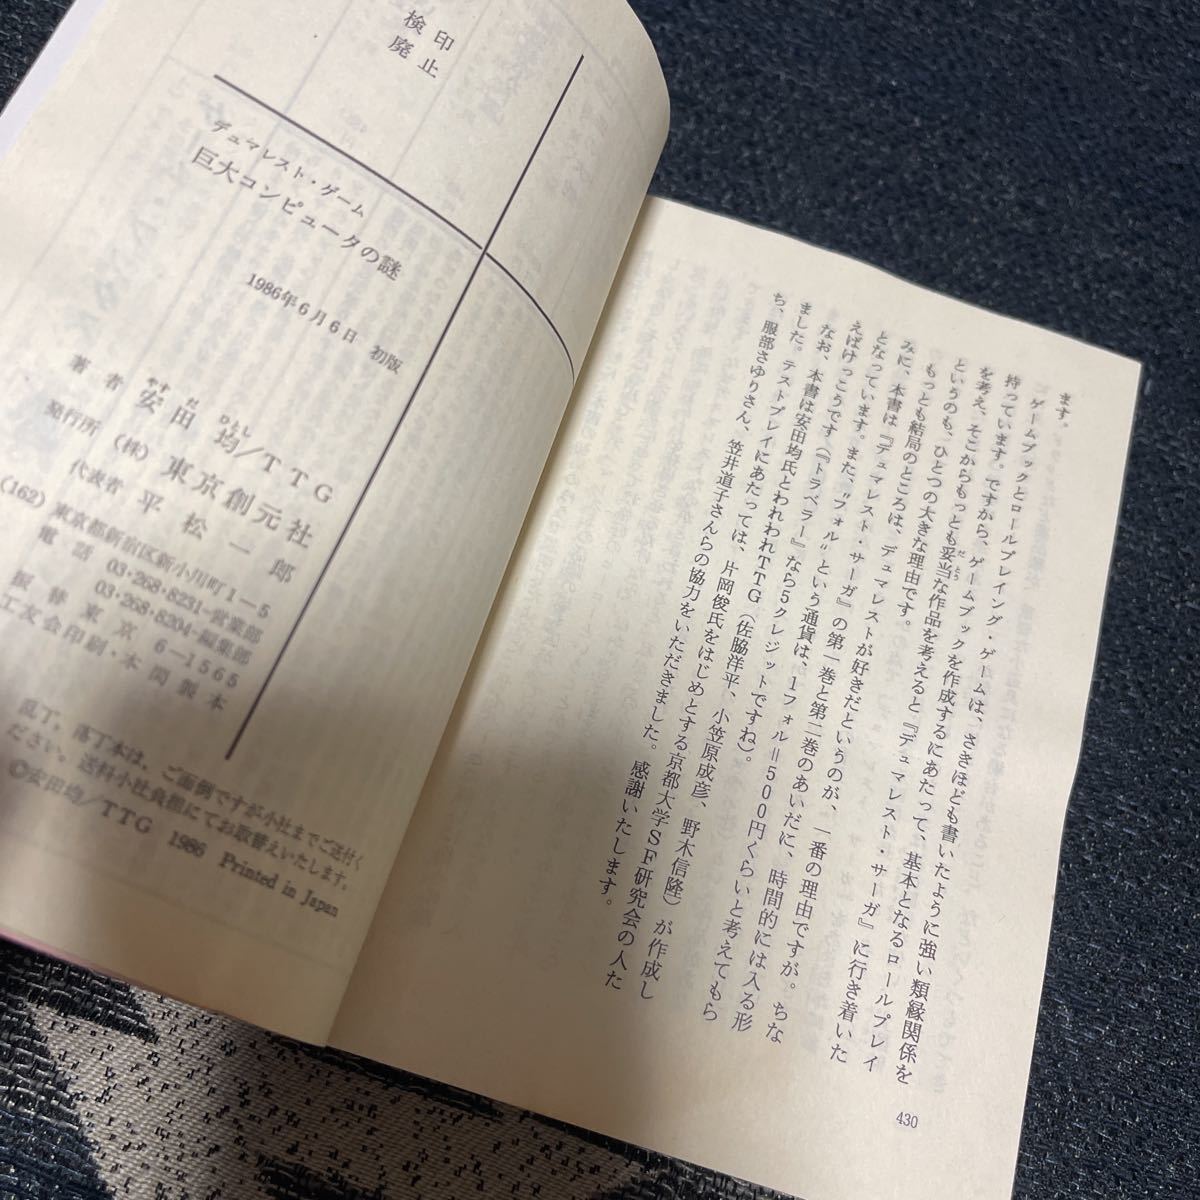 ます。
　ゲームブックとロールプレイング・ゲームは、さきほども書いたように強い類縁関係を
持っています。ですから、ゲームブックを作成するにあたって、基本となるロールプレイ
を考え、そこからもっとも妥当な作品を考えると『デュマレスト・サーガ』に行き着いた
というのも、ひとつの大きな理由です。
　もっとも結局のところは、デュマレストが好きだというのが、一番の理由ですが。ちな
みに、本書は『デュマレスト・サーガ』の第一巻と第二巻のあいだに、時間的には入る形
となっています。また、“フォル”という通貨は、1フォル＝500円くらいと考えてもら
えばけっこうです（『トラベラー』なら5クレジットですね）。
　なお、本書は安田均氏とわれわれTTG（佐脇洋平、小笠原成彦、野木信隆）が作成し
ました。テストプレイにあたっては、片岡俊氏をはじめとする京都大学SF研究会の人た
ち、服部さゆりさん、笠井道子さんらの協力をいただきました。感謝いたします。
430
検印
廃止
デュマレスト・ゲーム
巨大コンピュータの謎
1986年6月6日　初版
著者　安田　均／TTG
やすだ　ひとし
発行所　（株）東京創元社
代表者　平松一郎
(162) 東京都新宿区新小川町1-5
電話　03・268・8231-営業部
03・268・8204-編集部
振替東京6-1565
工友会印刷・本間製本
乱丁，落丁本は，ご面倒ですが小社までご送付く
ださい。送料小社負担にてお取替えいたします。
©安田均／TTG　1986　Printed in Japan